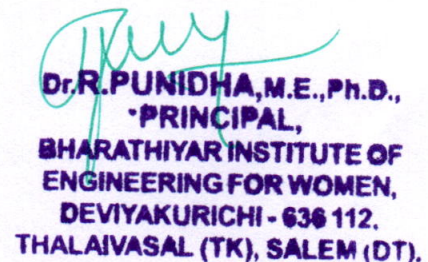 Dr.R.PUNIDHA,M.E.,Ph.D.,
PRINCIPAL,
BHARATHIYAR INSTITUTE OF
ENGINEERING FOR WOMEN,
DEVIYAKURICHI - 636 112.
THALAIVASAL (TK), SALEM (DT).